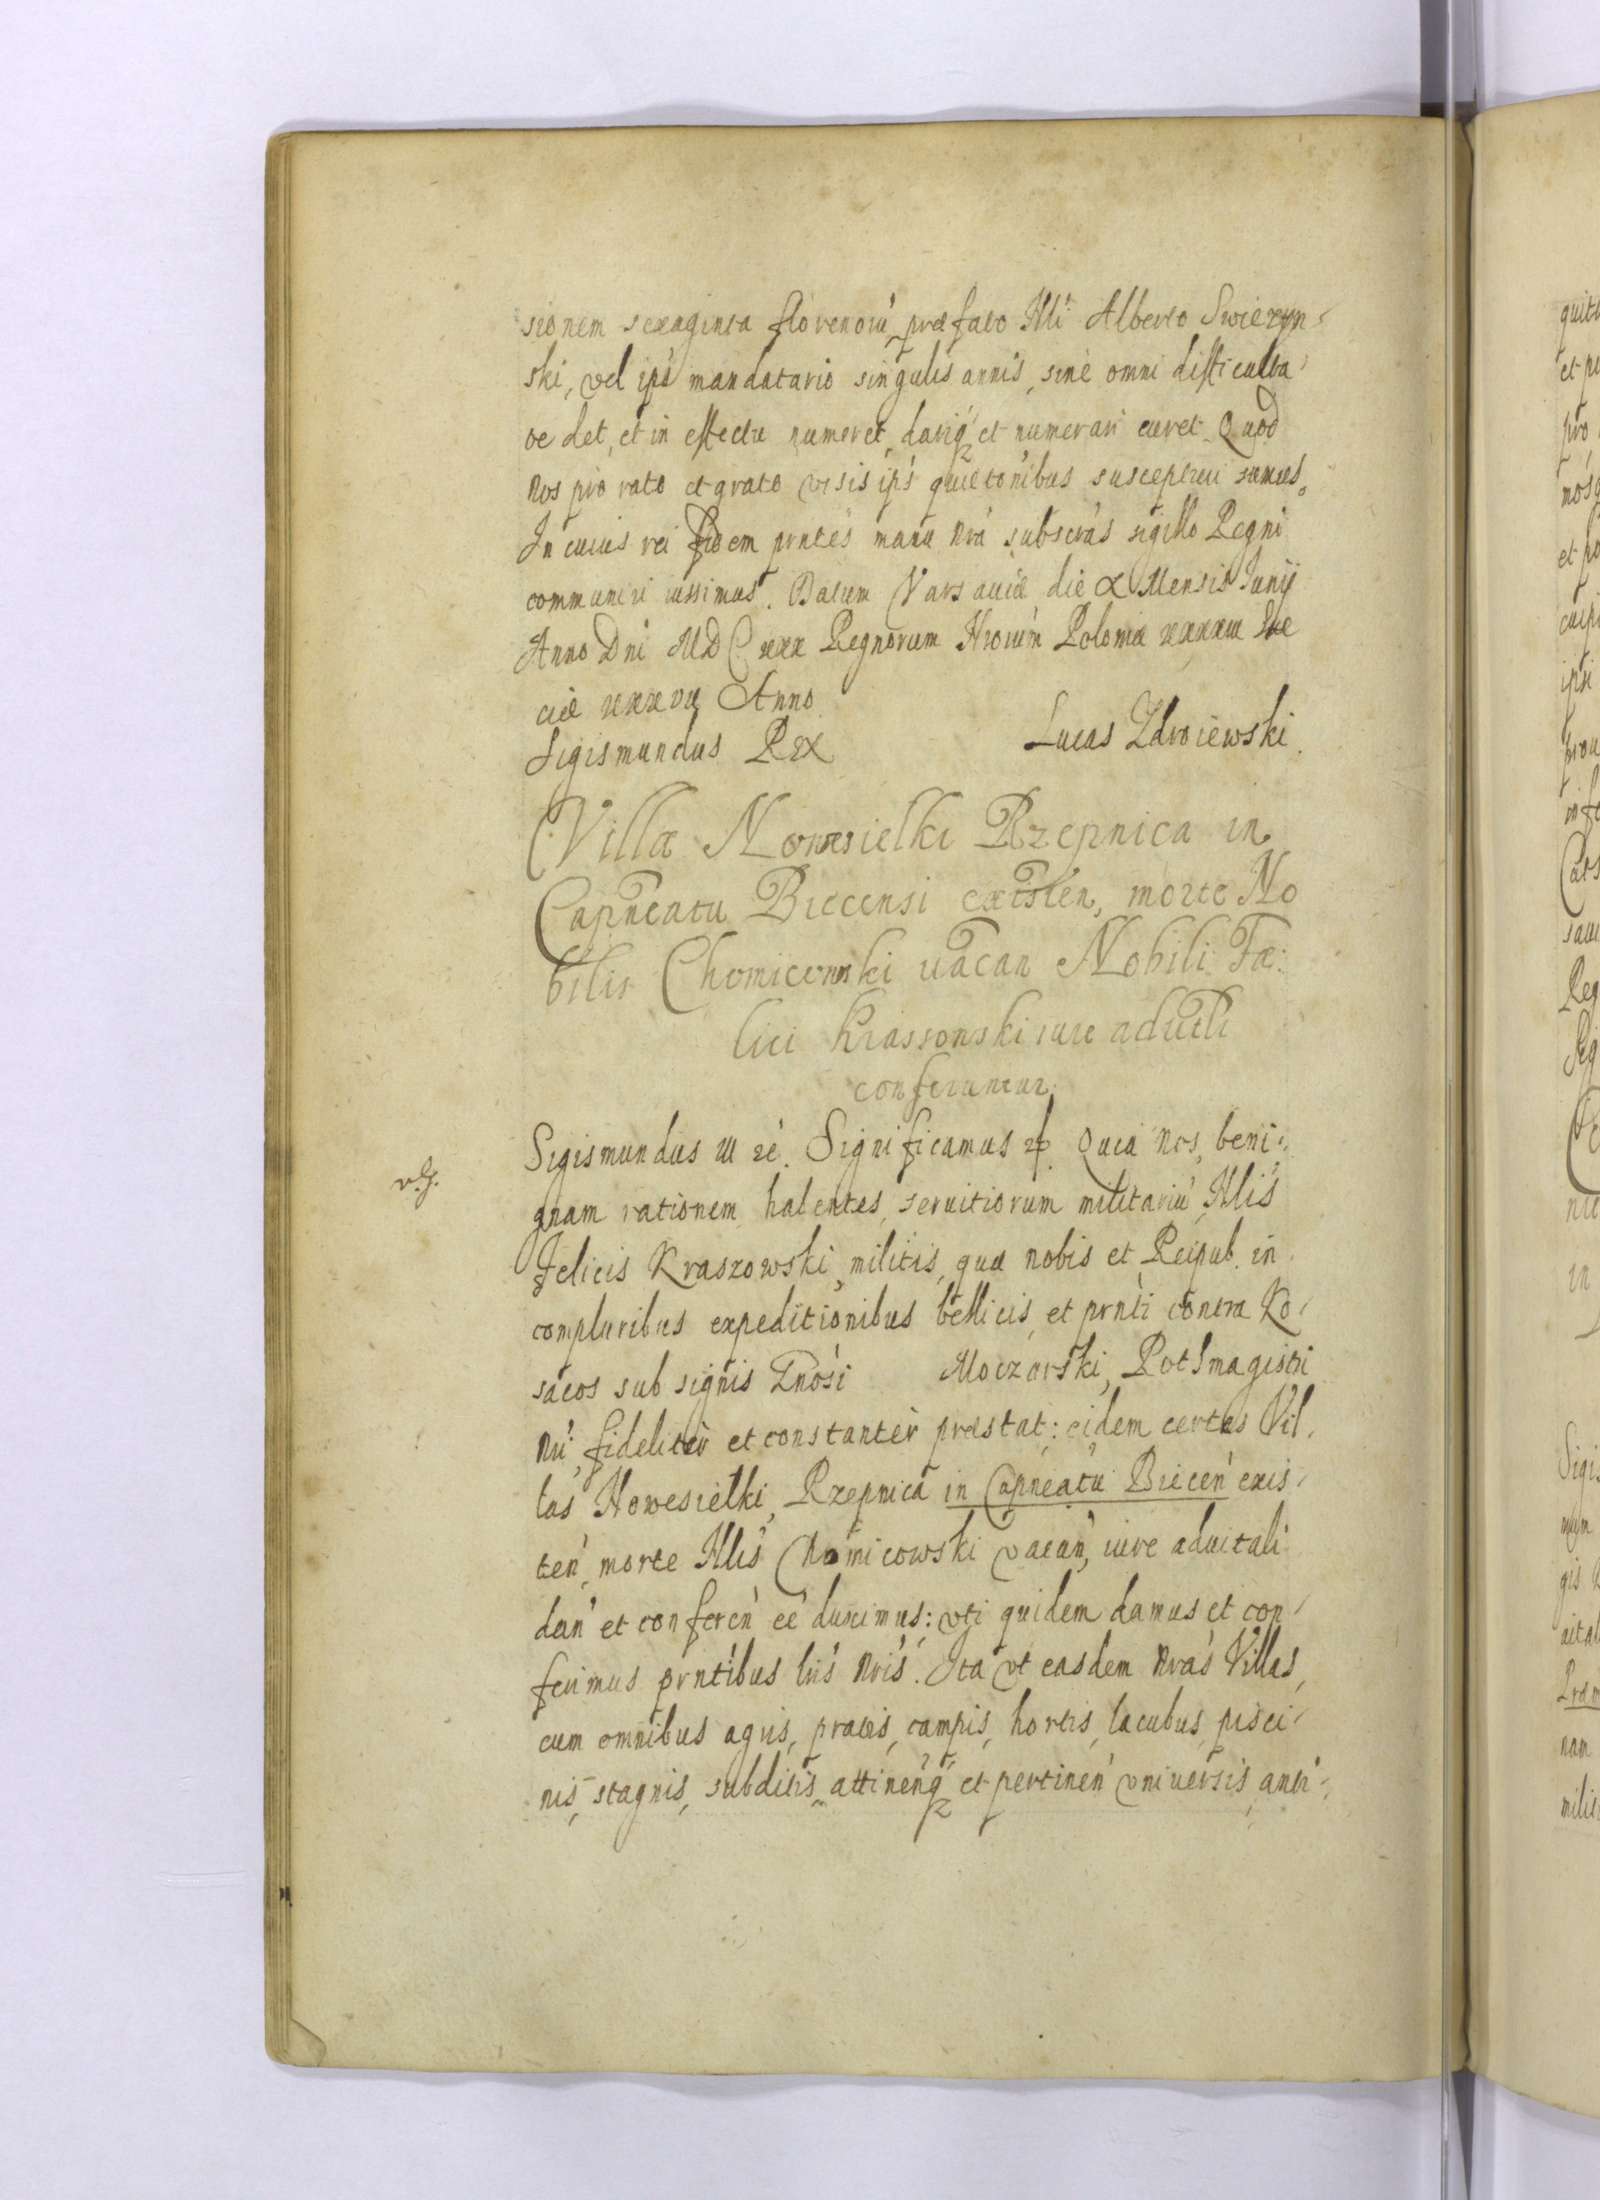 sionem sexaginta florenorū præfato Nlī Alberto Swierzyn-
ski, vel ips̄ mandatario singulis annis, sinè omni difficulta-
te det, et in effectu numeret, dariq́ et numerari curet. Quod
nos pro rato et grato visis ips̄ quietōnibus suscepturi sumus.
In cuius rei fidem prntēs manu nrā subscrās sigillo Regni
communiri iussimus. Datum Varsauiæ die X Mensis Junÿ
Anno Dnī MDCxxx Regnorum Nrorūm Poloniæ xxxxiii Sue
ciæ xxxvii Anno
Sigismundus Rex Lucas Zdroiewski.
Villæ Nowesielki Rzepnica in
Capneatu Biecensi existen, morte No
bilis Chomicowski uacan Nobili Fæ:
lici Krassowski iure aduitli
conferuntur
Sigismundus III rė. Significamus Quia nos, beni-
v.g.
gnam rationem habentes, seruitiorum militariū, Nlis̄
Felicis Kraszowski, militis, quæ nobis et Reipub. in
compluribus expeditionibus bellicis, et prntī contra Ko-
sacos sub signis Gnōsi Moczarski, Rotsmagistri
nrī, fideliter et constanter præstat: eidem certas Vil-
las Nowesielki, Rzepnica in Capneatu Biecen̄ exis-
ten̄, morte Nlis̄ Chomicowski vacan̄, iure aduitali
dan̄ et conferen̄ eē duximus: vti quidem damus et con-
ferimus prntībus lrīs nrīs. Ita vt easdem nrās Villas,
cum omnibus agris, pratis, campis, hortis, lacubus, pisci-
nis, stagnis, subditis, attinen̄q́ et pertinen̄ vniuersis, anti-